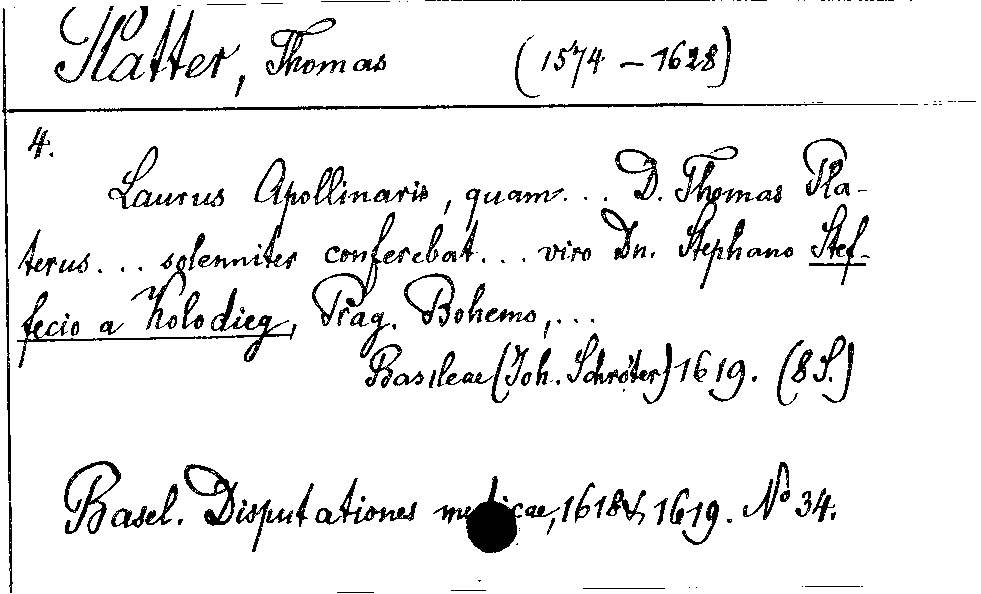 Platter, Thomas (1574 – 1628)
4.
Laurus Apollinaris, quam... D. Thomas Pla-
terus... solenniter conferebat... viro Dn. Stephano Stef-
fecio a Kolodieg, Prag. Bohemo,...
Basileae (Joh. Schröter) 1619. (8 S.)
Basel. Disputationes medicae, 1618 & 1619. No 34.